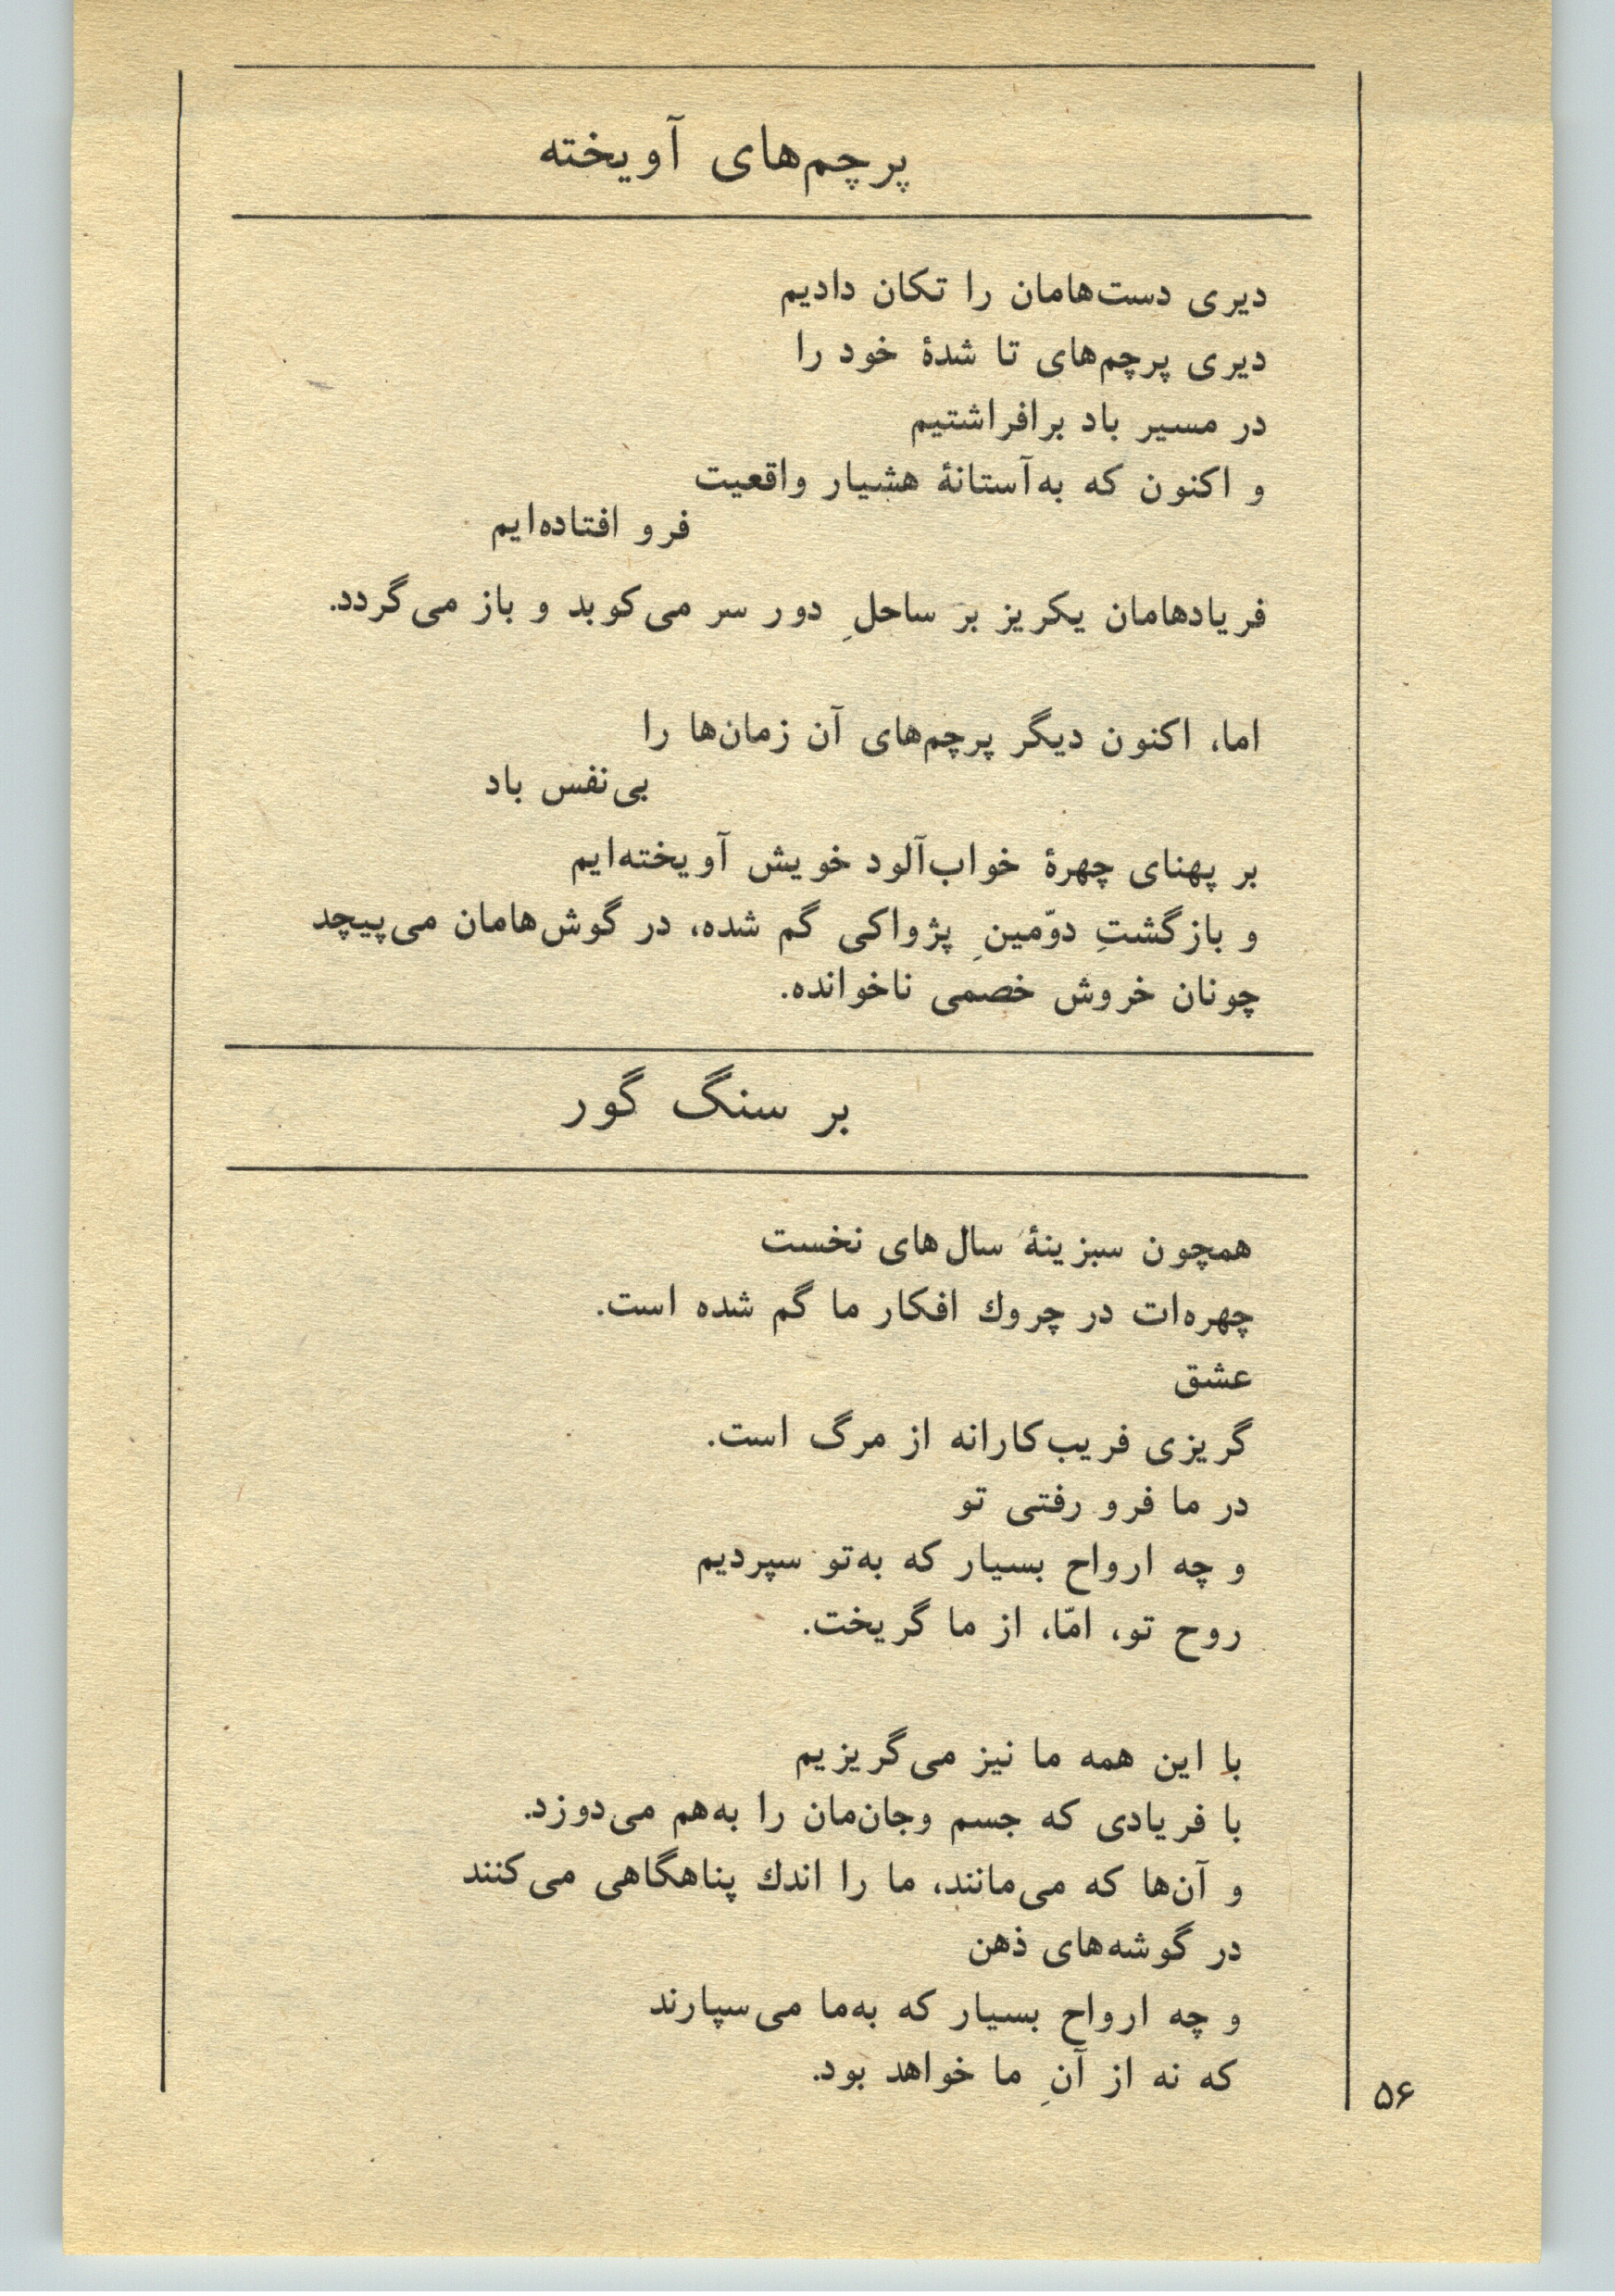 پرچم‌های آویخته
دیری دست‌هامان را تکان دادیم
دیری پرچم‌های تا شدهٔ خود را
در مسیر باد برافراشتیم
و اکنون که به‌آستانهٔ هشیار واقعیت
فرو افتاده‌ایم
فریادهامان یکریز بر ساحلِ دور سر می‌کوبد و باز می‌گردد.
اما، اکنون دیگر پرچم‌های آن زمان‌ها را
بی‌نفس باد
بر پهنای چهرهٔ خواب‌آلود خویش آویخته‌ایم
و بازگشتِ دوّمینِ پژواکی گم شده، در گوش‌هامان می‌پیچد
چونان خروش خصمی ناخوانده.
بر سنگ گور
همچون سبزینهٔ سال‌های نخست
چهره‌ات در چروك افکار ما گم شده است.
عشق
گریزی فریب‌کارانه از مرگ است.
در ما فرو رفتی تو
و چه ارواح بسیار که به‌تو سپردیم
روح تو، امّا، از ما گریخت.
با این همه ما نیز می‌گریزیم
با فریادی که جسم وجان‌مان را به‌هم می‌دوزد.
و آن‌ها که می‌مانند، ما را اندك پناهگاهی می‌کنند
در گوشه‌های ذهن
و چه ارواح بسیار که به‌ما می‌سپارند
که نه از آنِ ما خواهد بود.
۵۶